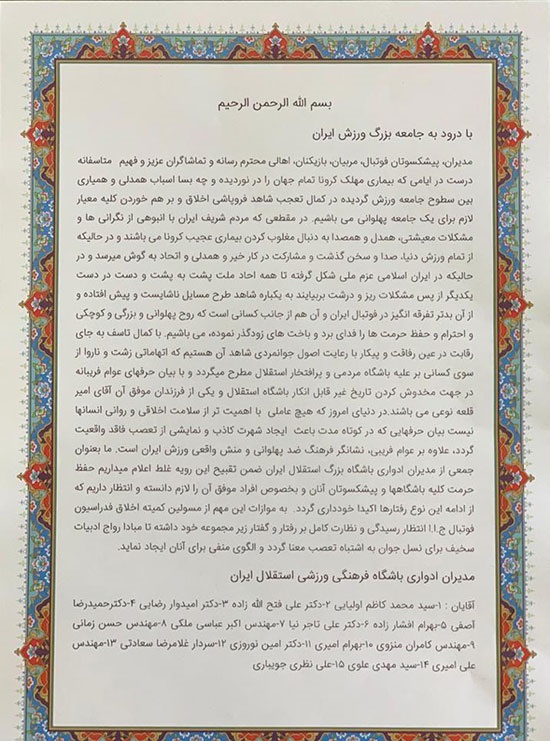 بسم الله الرحمن الرحیم
با درود به جامعه بزرگ ورزش ایران
مدیران، پیشکسوتان فوتبال، مربیان، بازیکنان، اهالی محترم رسانه و تماشاگران عزیز و فهیم متاسفانه
درست در ایامی که بیماری مهلک کرونا تمام جهان را در نوردیده و چه بسا اسباب همدلی و همیاری
بین سطوح جامعه ورزش گردیده در کمال تعجب شاهد فروپاشی اخلاق و بر هم خوردن کلیه معیار
لازم برای یک جامعه پهلوانی می باشیم. در مقطعی که مردم شریف ایران با انبوهی از نگرانی ها و
مشکلات معیشتی، همدل و همصدا به دنبال مغلوب کردن بیماری عجیب کرونا می باشند و در حالیکه
از تمام ورزش دنیا، صدا و سخن گذشت و مشارکت در کار خیر و همدلی و اتحاد به گوش میرسد و در
حالیکه در ایران اسلامی عزم ملی شکل گرفته تا همه احاد ملت پشت به پشت و دست در دست
یکدیگر از پس مشکلات ریز و درشت بربیایند به یکباره شاهد طرح مسایل ناشایست و پیش افتاده و
از آن بدتر تفرقه انگیز در فوتبال ایران و آن هم از جانب کسانی است که روح پهلوانی و بزرگی و کوچکی
و احترام و حفظ حرمت ها را فدای برد و باخت های زودگذر نموده، می باشیم. با کمال تاسف به جای
رقابت در عین رفاقت و پیکار با رعایت اصول جوانمردی شاهد آن هستیم که اتهاماتی زشت و ناروا از
سوی کسانی بر علیه باشگاه مردمی و پرافتخار استقلال مطرح میگردد و با بیان حرفهای عوام فریبانه
در جهت مخدوش کردن تاریخ غیر قابل انکار باشگاه استقلال و یکی از فرزندان موفق آن آقای امیر
قلعه نوعی می باشند.در دنیای امروز که هیچ عاملی با اهمیت تر از سلامت اخلاقی و روانی انسانها
نیست بیان حرفهایی که در کوتاه مدت باعث ایجاد شهرت کاذب و نمایشی از تعصب فاقد واقعیت
گردد، علاوه بر عوام فریبی، نشانگر فرهنگ ضد پهلوانی و منش واقعی ورزش ایران است. ما بعنوان
جمعی از مدیران ادواری باشگاه بزرگ استقلال ایران ضمن تقبیح این رویه غلط اعلام میداریم حفظ
حرمت کلیه باشگاهها و پیشکسوتان آنان و بخصوص افراد موفق آن را لازم دانسته و انتظار داریم که
از ادامه این نوع رفتارها اکیدا خودداری گردد. به موازات این مهم از مسولین کمیته اخلاق فدراسیون
فوتبال ج.ا.ا انتظار رسیدگی و نظارت کامل بر رفتار و گفتار زیر مجموعه خود داشته تا مبادا رواج ادبیات
سخیف برای نسل جوان به اشتباه تعصب معنا گردد و الگوی منفی برای آنان ایجاد نماید.
مدیران ادواری باشگاه فرهنگی ورزشی استقلال ایران
آقایان : ۱-سید محمد کاظم اولیایی ۲-دکتر علی فتح الله زاده ۳-دکتر امیدوار رضایی ۴-دکترحمیدرضا
آصفی ۵-بهرام افشار زاده ۶-دکتر علی تاجر نیا ۷-مهندس اکبر عباسی ملکی ۸-مهندس حسن زمانی
۹-مهندس کامران منزوی ۱۰-بهرام امیری ۱۱-دکتر امین نوروزی ۱۲-سردار غلامرضا سعادتی ۱۳-مهندس
علی امیری ۱۴-سید مهدی علوی ۱۵-علی نظری جویباری